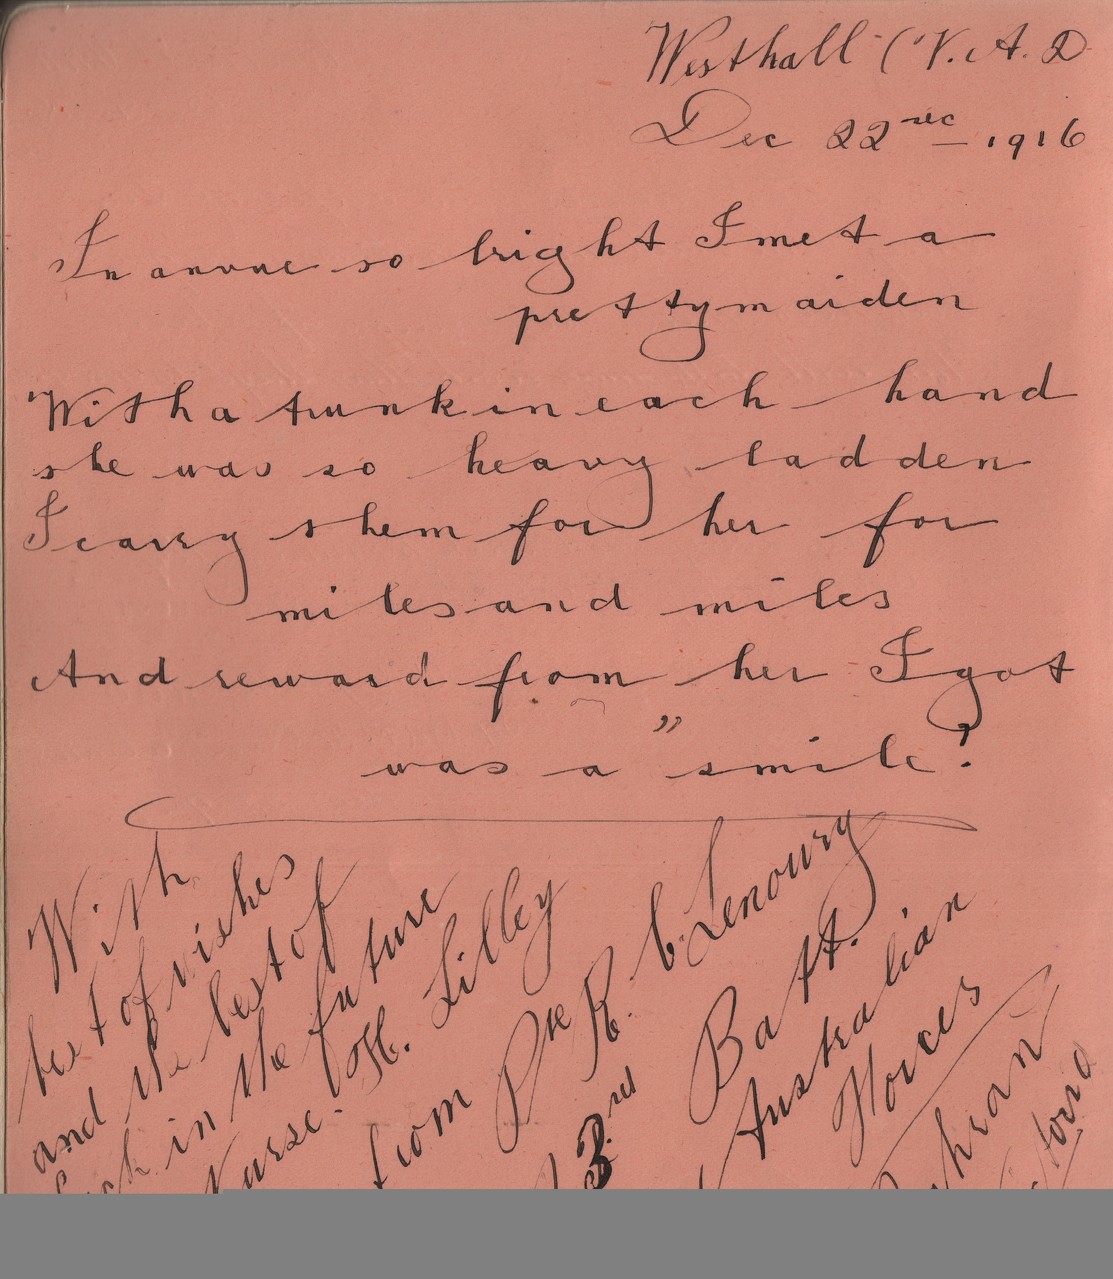 Westhall (V.A.D
Dec 22nd 1916
In anvue so bright I met a
pretty maiden
With a trunk in each hand
she was so heavy ladden
I carry them for her for
miles and miles
And reward from her I got
was a "smile!
With
best of wishes
and the best of
in the future
Nurse. H. Lilley
from Pte R. C. Lenoury
3rd Batt.
Australian
Forces